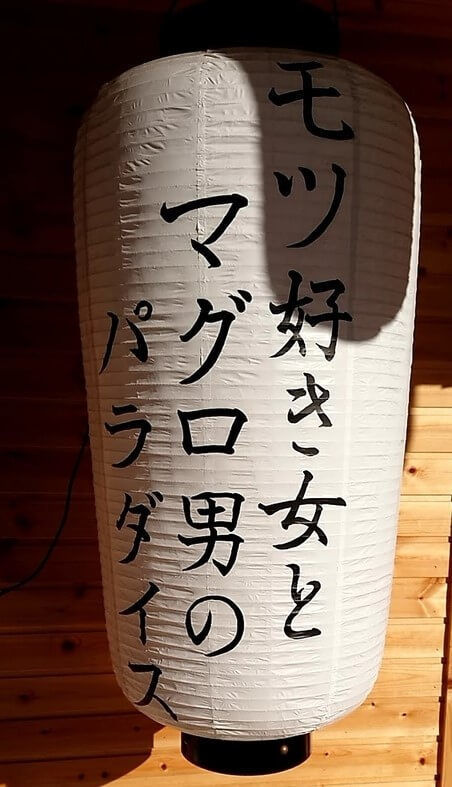 モツ好き女と
マグロ男の
パラダイス